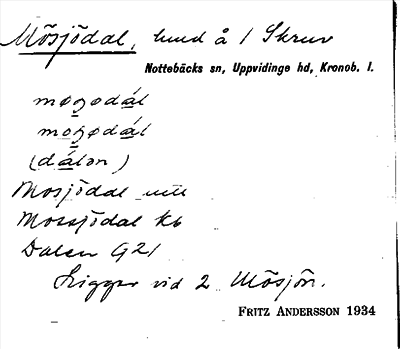 Mösjödal, hmd å 1 Skruv
Nottebäcks sn, Uppvidinge hd, Kronob. l.
møʒødál
moʒødál
(dálən)
Mosjödal
Mossjödal Kb
Dalen G21
Ligger vid 2 Mösjön.
FRITZ ANDERSSON 1934